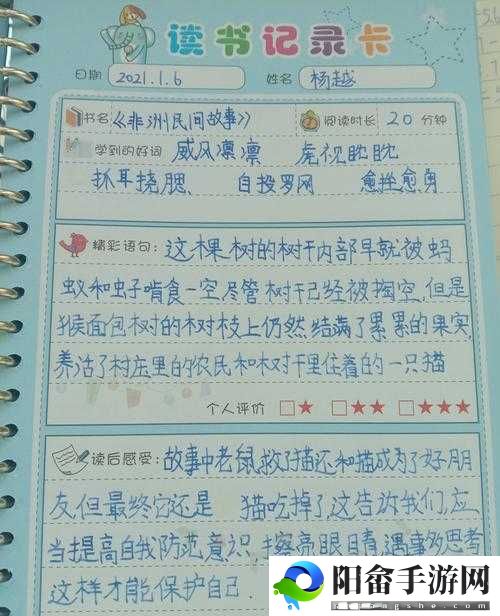 读书记录卡
日期 2021.1.6 姓名 杨越
书名 《非洲民间故事》 阅读时长 20 分钟
学到的好词 威风凛凛 虎视眈眈
抓耳挠腮、 自投罗网 愈挫愈勇
精彩语句: 这棵树的树干内部早就被蚂
蚁和虫子啃食一空,尽管树干已经被掏空,但是
猴面包树的树枝上仍然结满了累累的果实,
养活了村庄里的农民和树干里住着的一只猫
个人评价 □★ □★★ □★★★
读后感受: 故事中老鼠救了猫还和猫成为了好朋
友,但最终它还是 猫吃掉了,这告诉我们,应
当提高自我防范意识,擦亮眼睛,遇事多思考
这样才能保护自己.
阳畲手游网